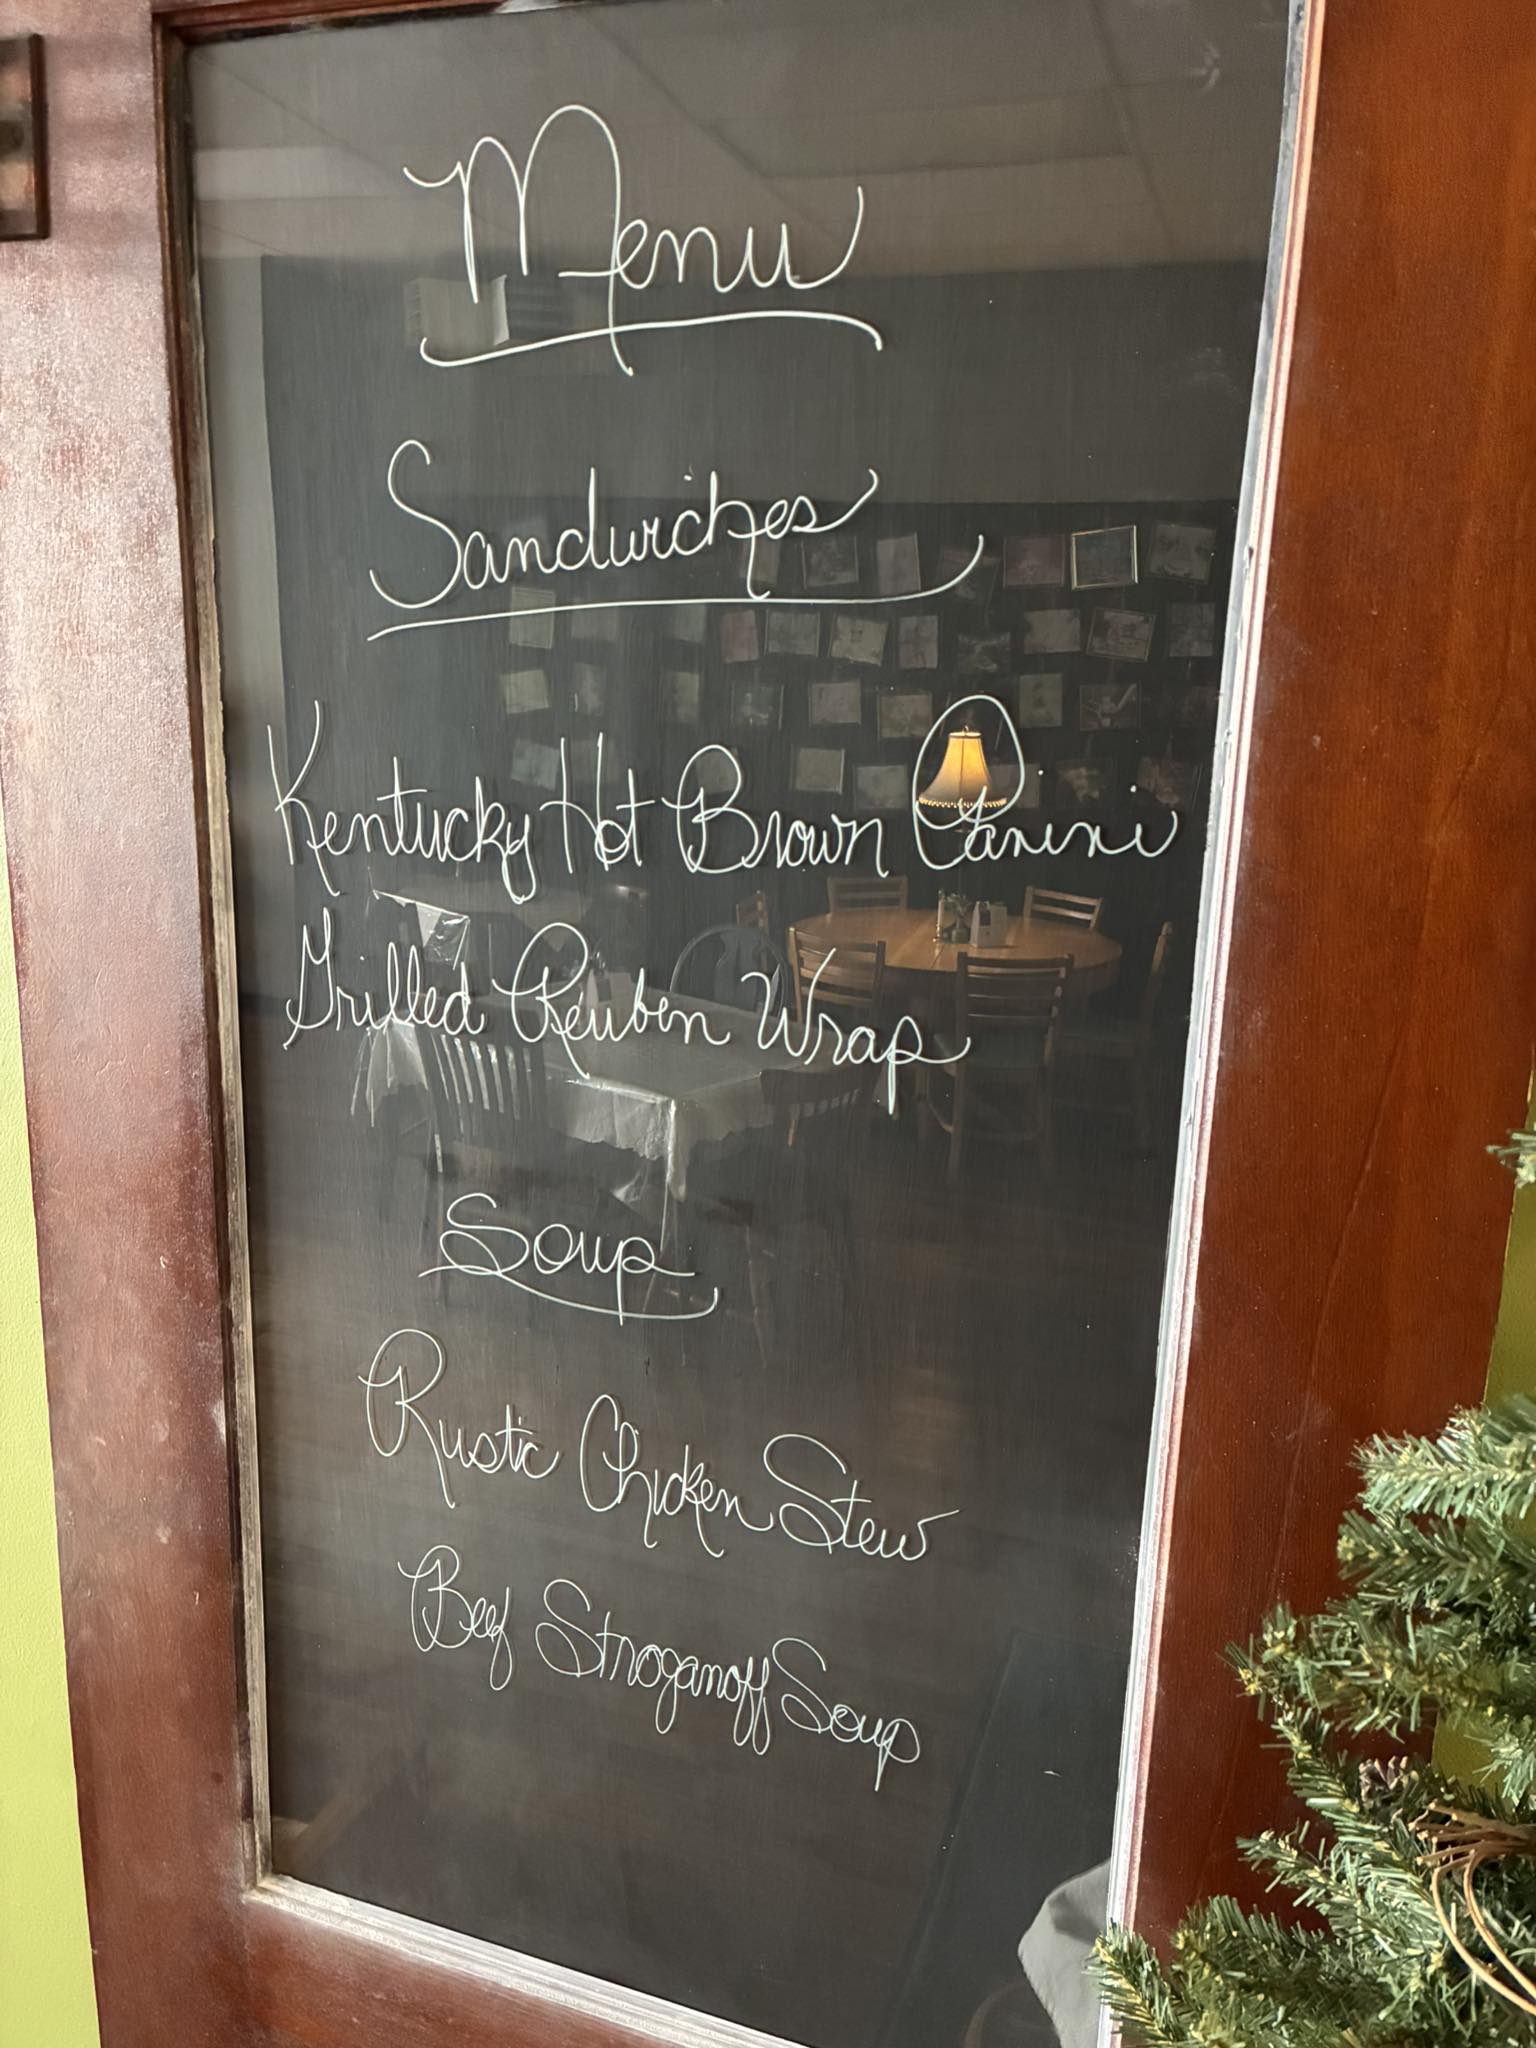 Menu
Sandwiches
Kentucky Hot Brown Panini
Grilled Reuben Wrap
Soup
Rustic Chicken Stew
Beef Stroganoff Soup